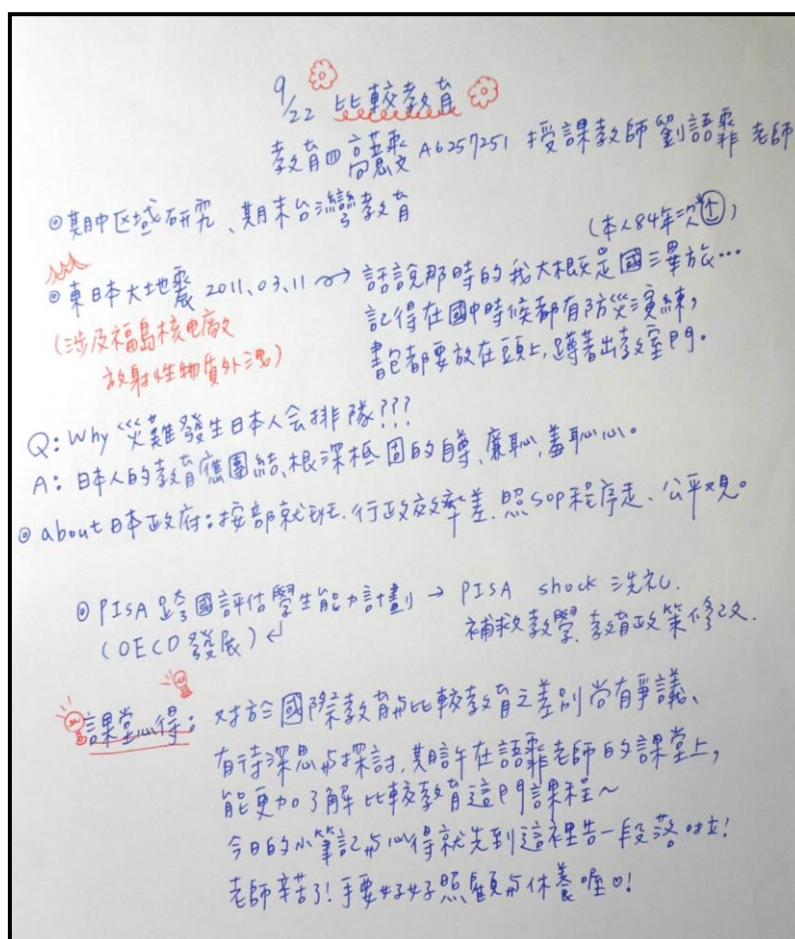 9/22 比較教育
教育四 高燕雯 A6257251 授課教師 劉語霏 老師
◎期中区域研究、期末台灣教育
(本人84年次 生)
◎東日本大地震 2011.03.11 ~> 話說那時的我大概是國三畢旅…
(涉及福島核电廠
放射性物質外洩)
記得在國中時候都有防災演練,
書包都要放在頭上,蹲著出教室門。
Q: Why 災難發生日本人会排隊???
A: 日本人的教育應團結、根深柢固的自尊、廉恥、羞恥心。
◎ about日本政府:按部就班.行政效率差.照sop程序走、公平
◎ PISA 跨國評估學生能力計劃 → PISA shock 洗礼.
(OECD發展)
補救教學.教育政策修改.
課堂心得:
对於國際教育与比較教育之差別尚有爭議、
有待深思与探討,期許在語霏老師的課堂上,
能更加了解比較教育這門課程~
今日的小筆記与心得就先到這裡告一段落啦!
老師辛苦了!手要好好照顧与休養喔!